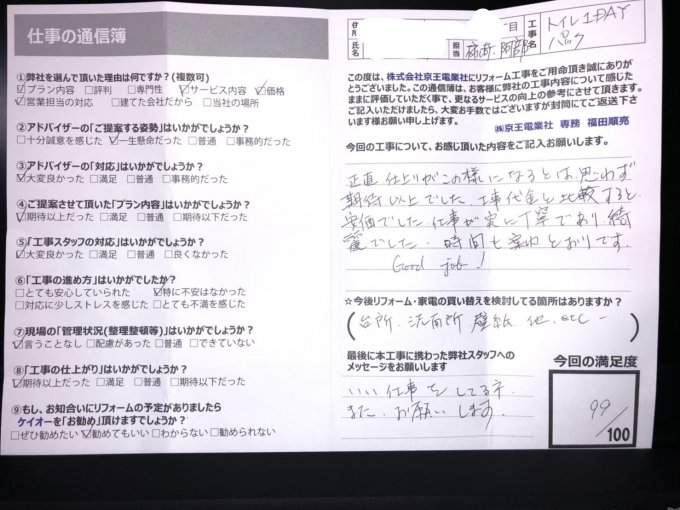 仕事の通信簿
①弊社を選んで頂いた理由は何ですか?(複数可)
☑プラン内容 □評判 □専門性 ☑サービス内容 ☑価格
☑営業担当の対応 □建てた会社だから □当社の場所
②アドバイザーの「ご提案する姿勢」はいかがでしょうか?
□十分誠意を感じた ☑一生懸命だった □普通 □事務的だった
③アドバイザーの「対応」はいかがでしょうか?
☑大変良かった □満足 □普通 □事務的だった
④ご提案させて頂いた「プラン内容」はいかがでしょうか?
☑期待以上だった □満足 □普通 □期待以下だった
⑤「工事スタッフの対応」はいかがでしょうか?
☑大変良かった □満足 □普通 □良くなかった
⑥「工事の進め方」はいかがでしたか?
□とても安心していられた ☑特に不安はなかった
□対応に少しストレスを感じた □とても不満を感じた
⑦現場の「管理状況(整理整頓等)」はいかがでしょうか?
☑言うことなし □配慮があった □普通 □できていない
⑧「工事の仕上がり」はいかがでしょうか?
☑期待以上だった □満足 □普通 □期待以下だった
⑨もし、お知合いにリフォームの予定がありましたら
ケイオーを「お勧め」頂けますでしょうか?
□ぜひ勧めたい ☑勧めてもいい □わからない □勧められない
目
氏名
担当
阿部
工事名
トイレ1DAY
パック
この度は、株式会社京王電業社にリフォーム工事をご用命頂き誠にありが
とうございました。この通信簿は、お客様に弊社の工事内容について感じた
ままに評価していただく事で、更なるサービスの向上の参考にさせて頂きます。
ご記入いただけましたら、大変お手数ではございますが封筒にてご返送下さ
います様お願い申し上げます。
㈱京王電業社 専務 福田順亮
今回の工事について、お感じ頂いた内容をご記入お願いします。
正直仕上りがこの様になるとは思わず
期待以上でした。工事代金と比較すると
安価でした。仕事が実に丁寧であり、綺
麗でした。時間も案内とおりです。
Good job!
☆今後リフォーム・家電の買い替えを検討してる箇所はありますか?
(台所、洗面所、壁紙、他、etc )
最後に本工事に携わった弊社スタッフへの
メッセージをお願いします
いい仕事をしてる
また、お願いします。
今回の満足度
99
/100